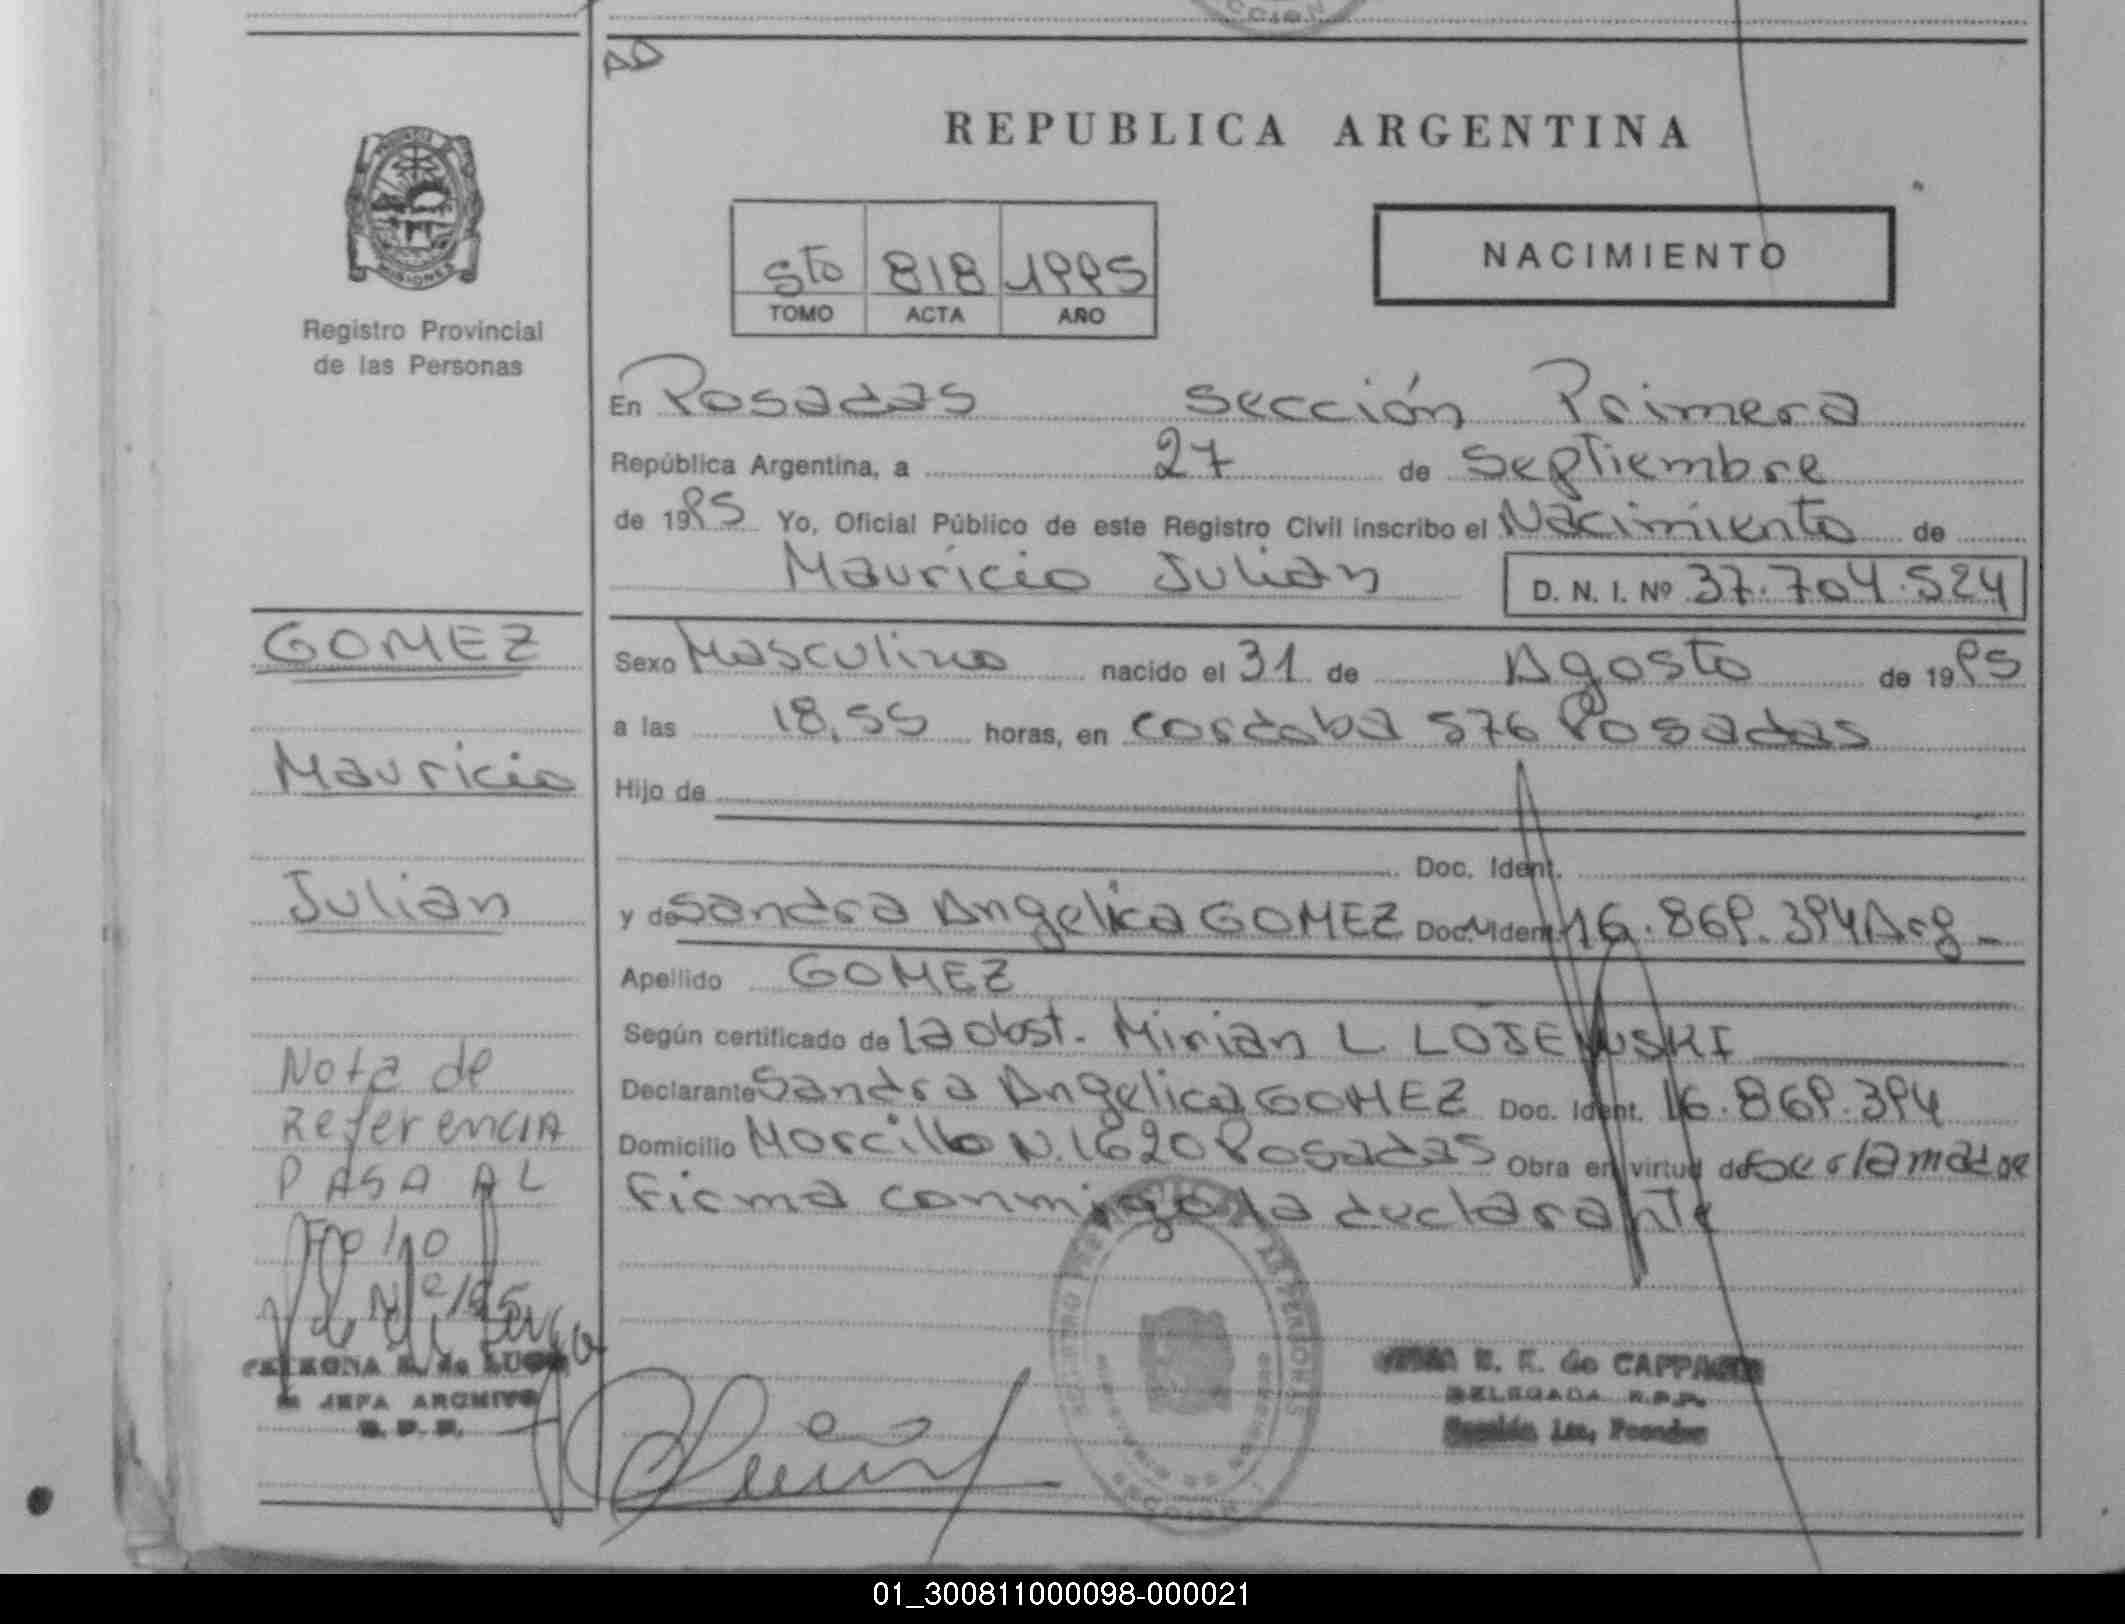 AD
REPUBLICA ARGENTINA
MISIONES
Registro Provincial
de las Personas
5to 818 1995
TOMO ACTA AÑO
NACIMIENTO
En Posadas Sección Primera
República Argentina, a 27 de Septiembre
de 1995 Yo, Oficial Público de este Registro Civil inscribo el Nacimiento de
Mauricio Julian D. N. I. Nº 37.704.524
GOMEZ
Mauricio
Julian
Sexo Masculino nacido el 31 de Agosto de 1995
a las 18,55 horas, en cordoba 576 Posadas
Hijo de
Doc. Ident.
y de Sandra Angelica GOMEZ Doc. Ident. 16.869.394 Arg.
Apellido GOMEZ
Según certificado de la obst. Mirian L. LOJEWSKI
Declarante Sandra Angelica GOMEZ Doc. Ident. 16.869.394
Domicilio Morcillo N.1620 Posadas Obra en virtud de ser la madre
Firma conmigo la declarante
Nota de
Referencia
PASA AL
Fº 110
PETRONA de LUGO
JEFA ARCHIVO
R. P. P.
E. K. de CAPPA
DELEGADA R.P.P.
Sección 1ra, Posadas
01_300811000098-000021